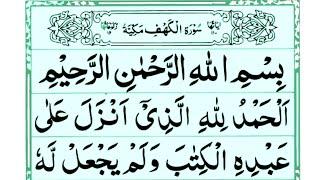 سُوْرَةُ الْكَهْفِ مَكِّيَّةٌ
بِسْمِ اللّٰهِ الرَّحْمٰنِ الرَّحِيْمِ
اَلْحَمْدُ لِلّٰهِ الَّذِىْۤ اَنْزَلَ عَلٰى
عَبْدِهِ الْكِتٰبَ وَلَمْ يَجْعَلْ لَّهٗ